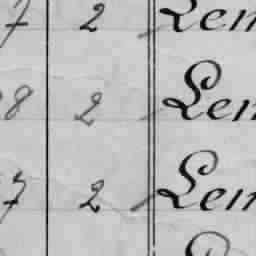 7 2 Lem
8 2 Lem
7 2 Lem